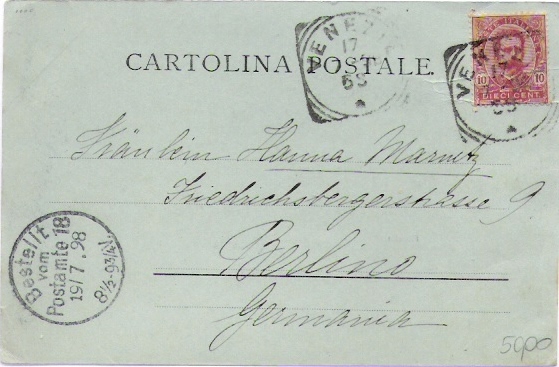 CARTOLINA POSTALE.
VENEZIA
17
POSTE ITALIANE
10 10
DIECI CENT.
Fräulein Hanna Marnitz
Friedrichsbergerstrasse 9
Berlino
Germania
Bestellt
vom
Postamte 18
19/7.98
8½-9¾N.
5000